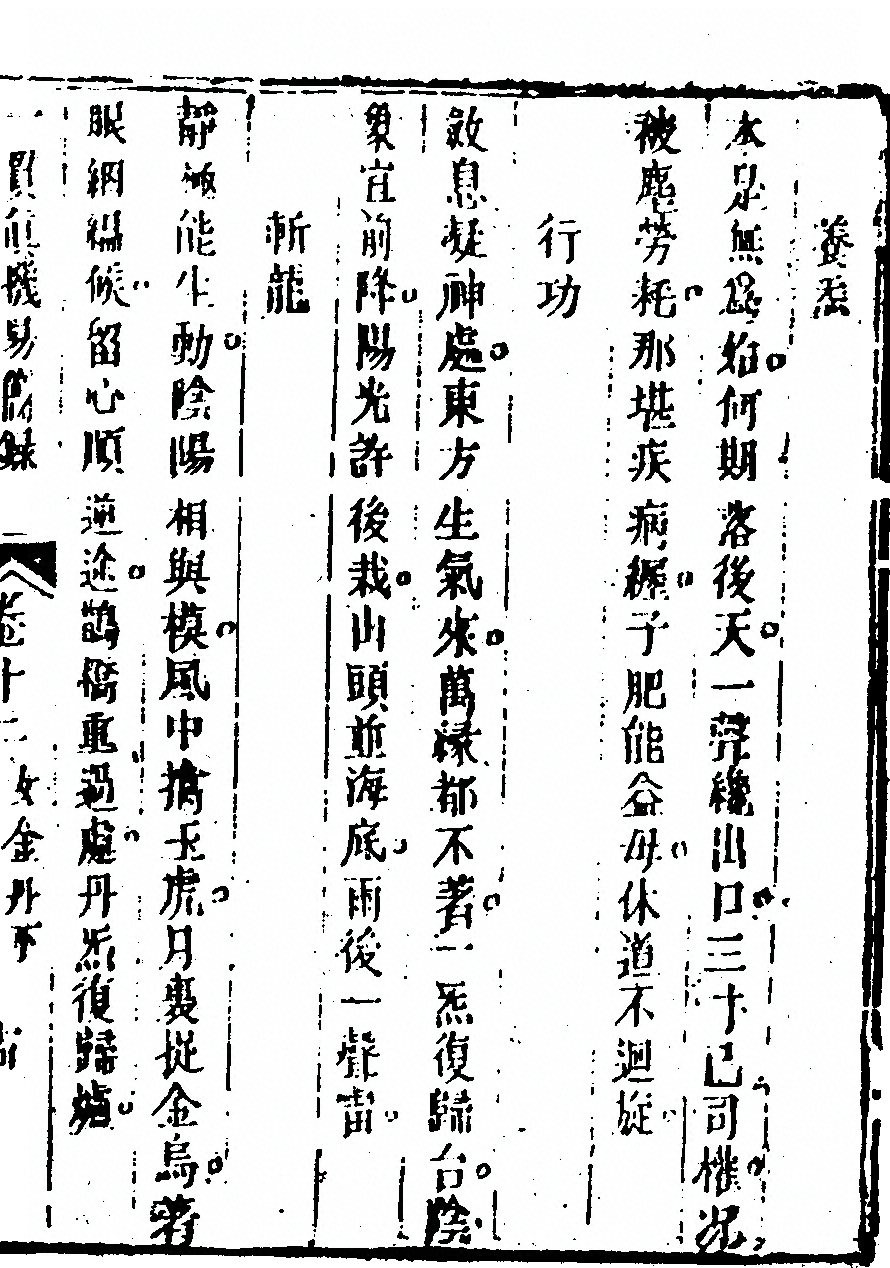 養炁
本是無為始何期落後天一聲纔出口三寸已司權況
被塵勞耗那堪疾病纏子肥能益母休道不迴旋
行功
斂息凝神處東方生氣來萬緣都不著一炁復歸台陰
象宜前降陽光許後栽山頭並海底雨後一聲雷
斬龍
靜極能生動陰陽相與模風中擒玉虎月裏捉金烏著
眼絪縕候留心順逆途鵲橋重過處丹炁復歸爐
一貫真機易簡錄 卷十二 女金丹下